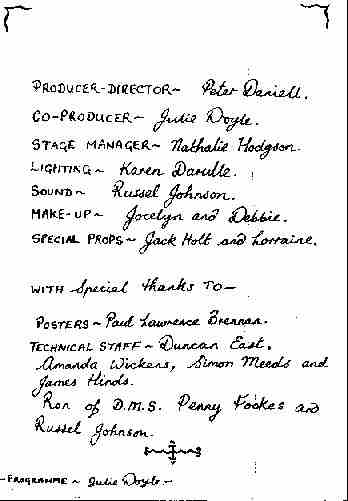 PRODUCER-DIRECTOR~ Peter Daniell.
CO-PRODUCER~ Julie Doyle.
STAGE MANAGER~ Nathalie Hodgson.
LIGHTING~ Karen Darville.
SOUND~ Russel Johnson.
MAKE-UP~ Jocelyn and Debbie.
SPECIAL PROPS~ Jack Holt and Lorraine.
WITH Special thanks TO—
POSTERS~ Paul Lawrence Brennan.
TECHNICAL STAFF~ Duncan East.
Amanda Wickens, Simon Meeds and
James Hinds.
Ron of D.M.S. Penny Fookes and
Russel Johnson.
-PROGRAMME~ Julie Doyle-